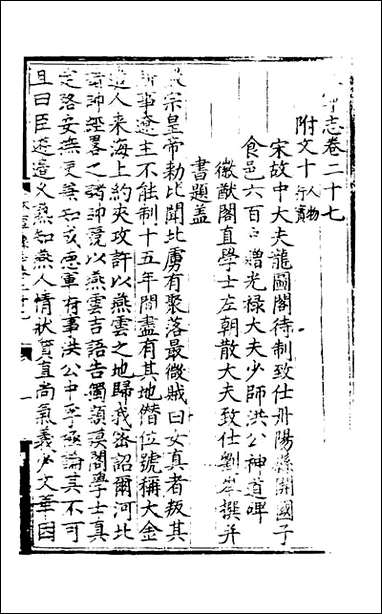 志卷二十七
附文十 人物行實
宋故中大夫龍圖閣待制致仕丹陽縣開國子
食邑六百户贈光禄大夫少師洪公神道碑
徽猷閣直學士左朝散大夫致仕劉岑撰并
書題蓋
宗皇帝勑比聞北虜有聚落最微賊曰女真者叛其
所事遼主不能制十五年間盡有其地僭位號稱大金
遣人来海上約夾攻許以燕雲之地歸我密詔爾河北
諸帥經畧之諸帥競以燕雲吉語告獨顯謨閣學士真
定路安撫使兼知成德軍府事洪公中孚極論其不可
且曰臣遊邊久熟知燕人情狀質直尚氣義少文華因